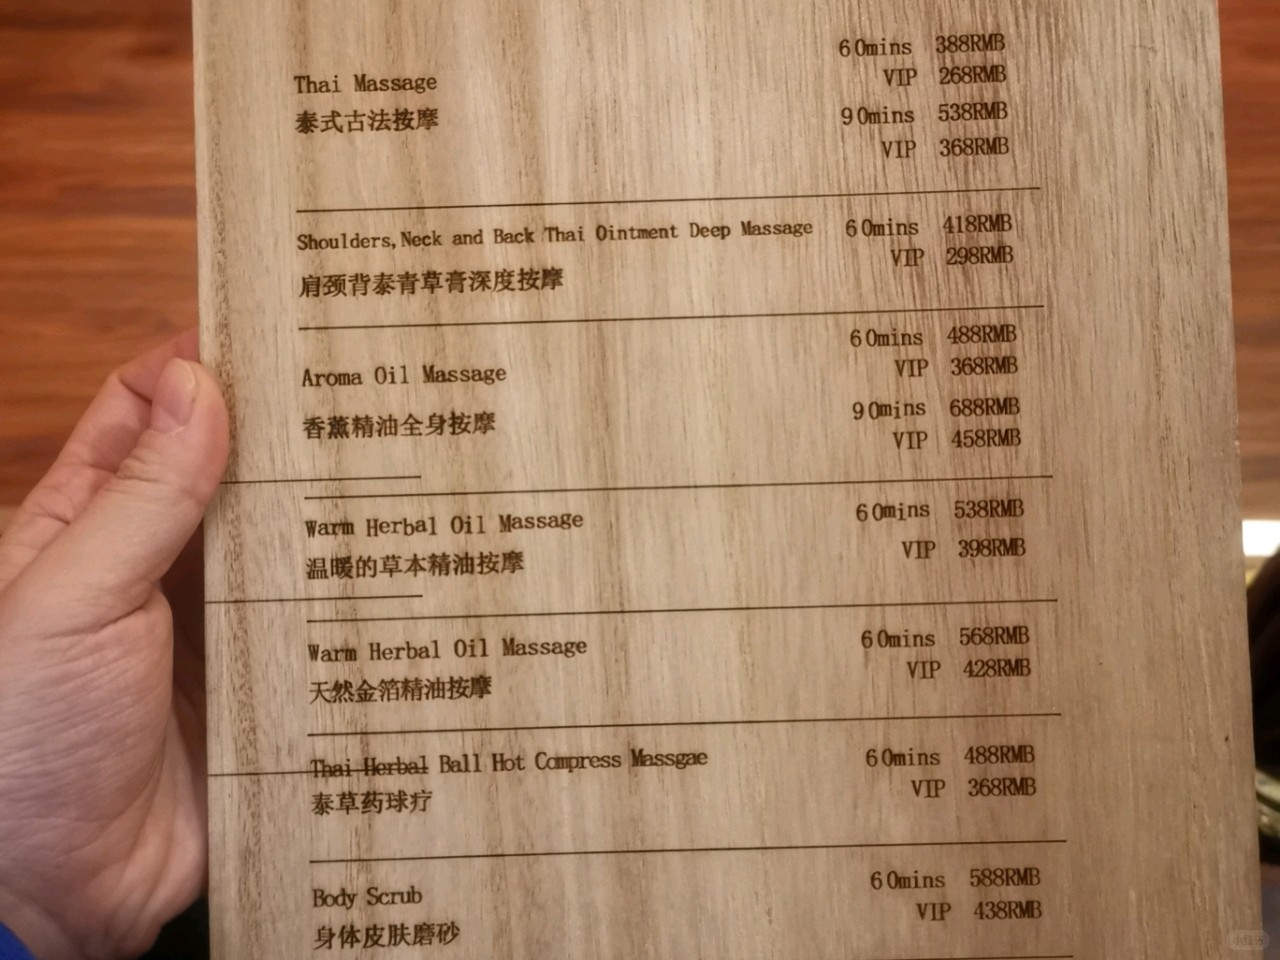 60mins 388RMB
Thai Massage VIP 268RMB
泰式古法按摩 90mins 538RMB
VIP 368RMB
Shoulders,Neck and Back Thai Ointment Deep Massage 60mins 418RMB
VIP 298RMB
肩颈背泰青草膏深度按摩
60mins 488RMB
Aroma Oil Massage VIP 368RMB
90mins 688RMB
香薰精油全身按摩 VIP 458RMB
Warm Herbal Oil Massage 60mins 538RMB
温暖的草本精油按摩 VIP 398RMB
Warm Herbal Oil Massage 60mins 568RMB
天然金箔精油按摩 VIP 428RMB
Thai Herbal Ball Hot Compress Massgae 60mins 488RMB
泰草药球疗 VIP 368RMB
Body Scrub 60mins 588RMB
身体皮肤磨砂 VIP 438RMB
小红书